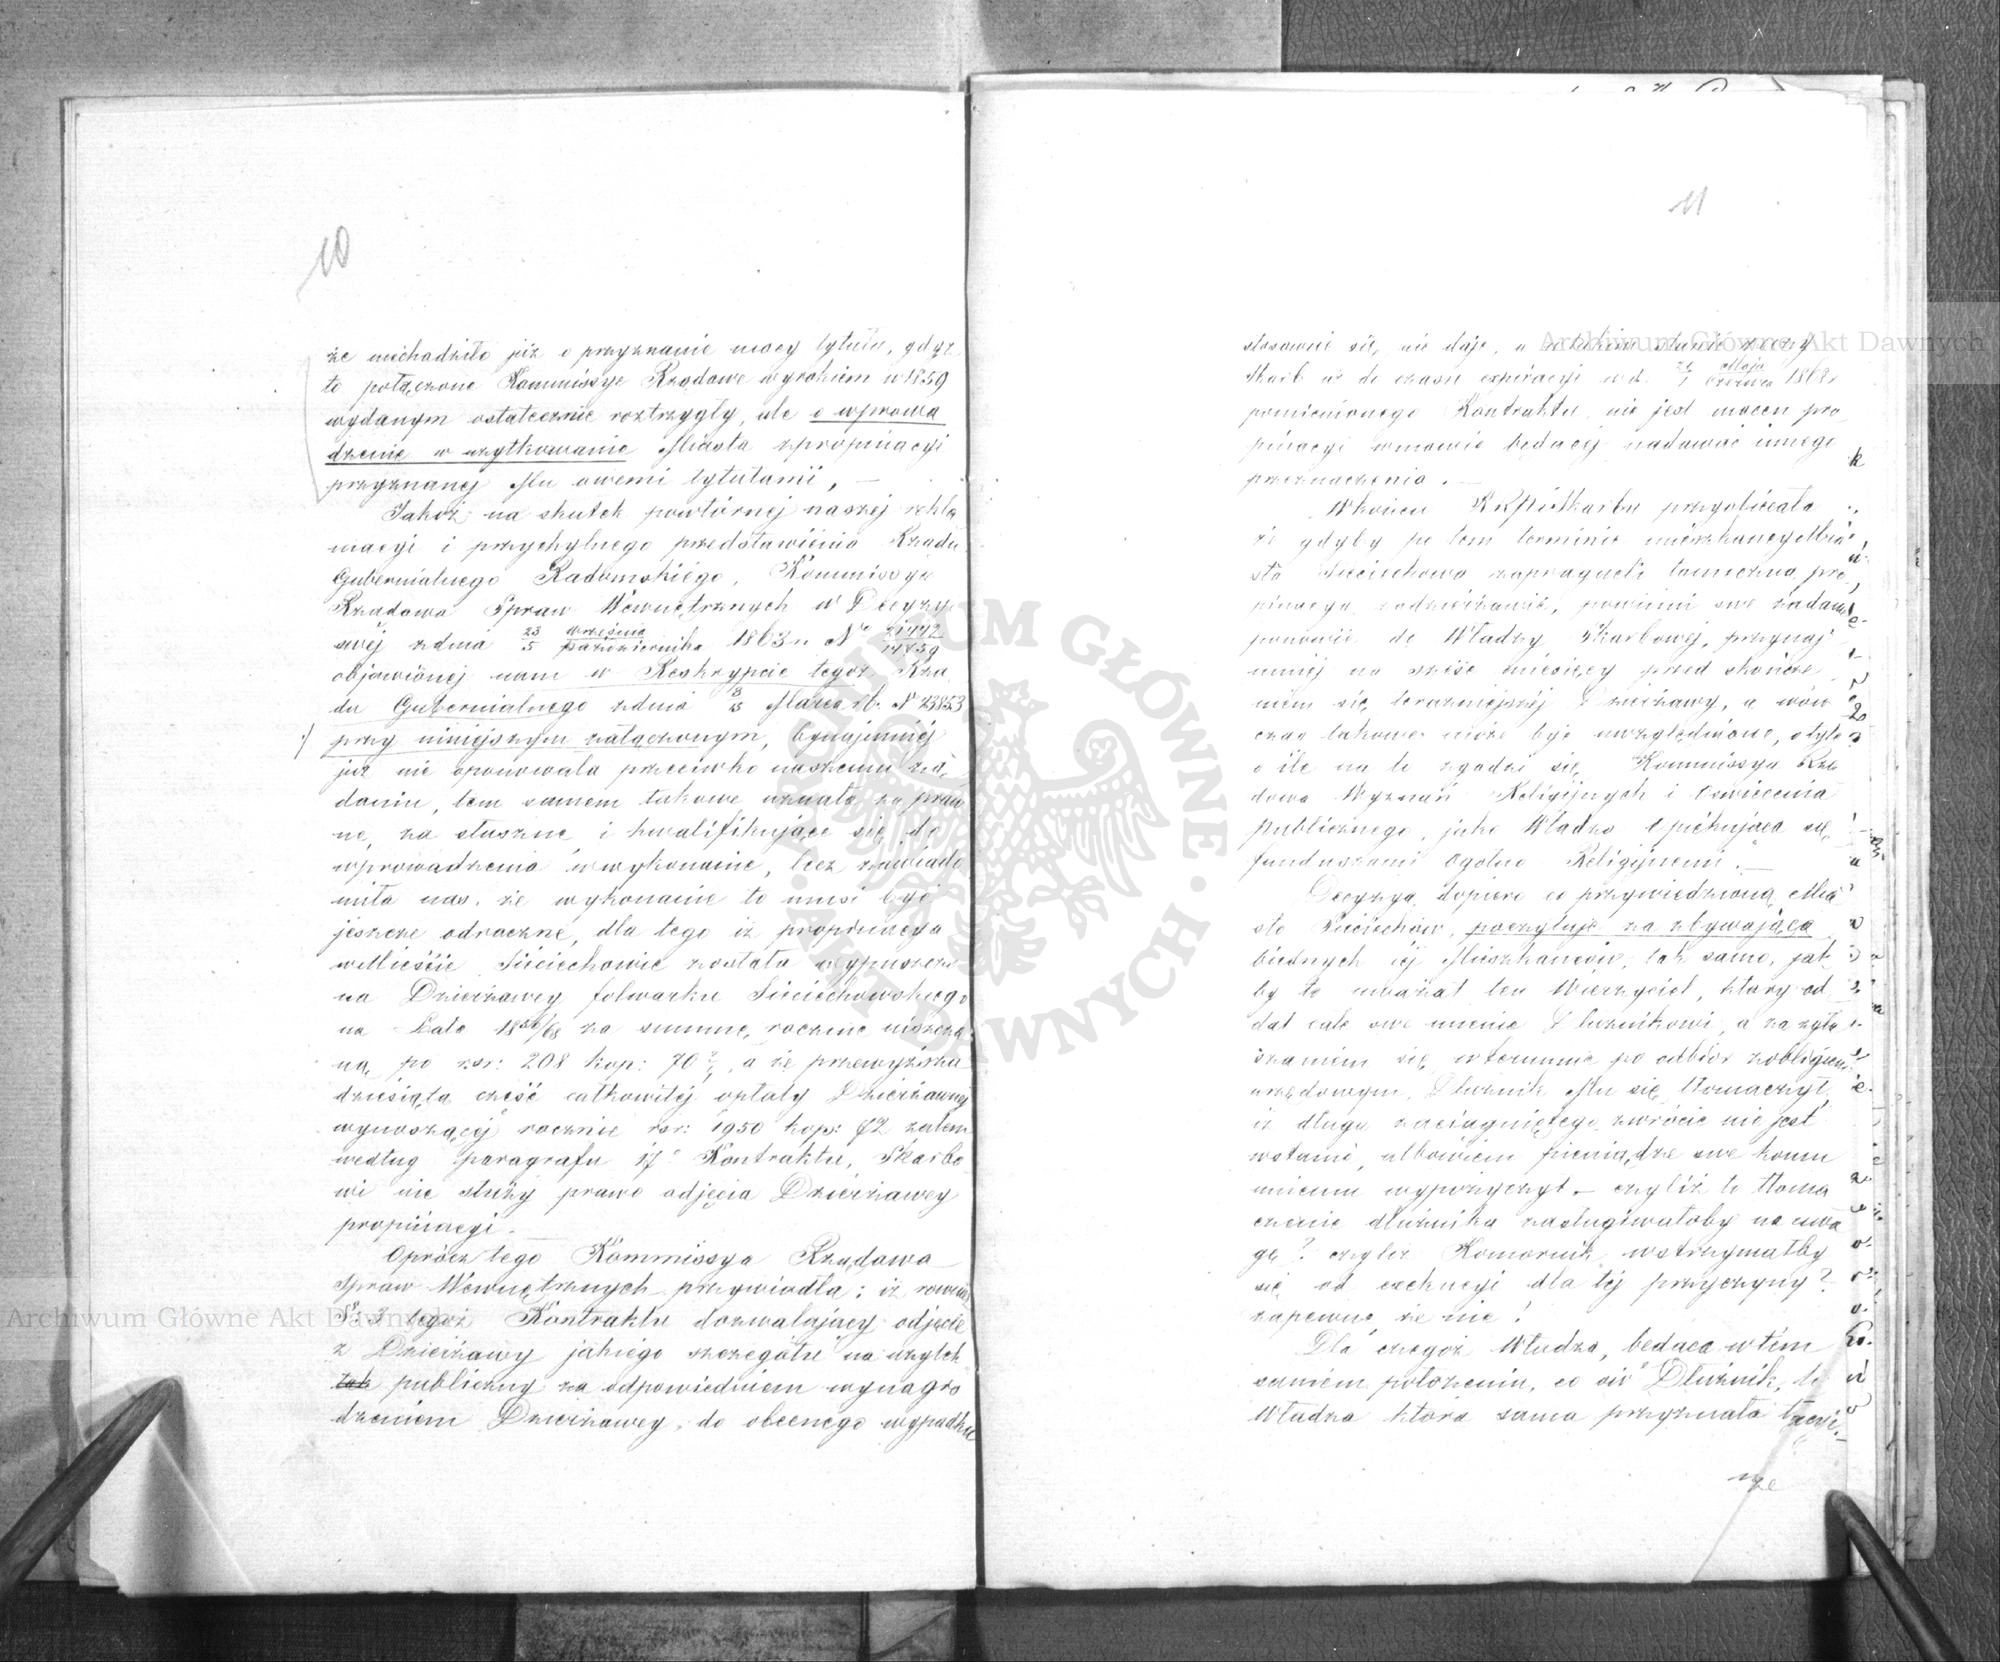 10
że niechodziło już o przyznanie mocy tytułu, gdyż
te połączone Kommissye Rządowe wyrokiem w 1859
wydanym ostatecznie roztrzygły, ale o wprowa
dzenie w użytkowanie Miasta z propinacyi
przyznanej Mu owemi tytułami, —
Jakoż na skutek powtórnej naszej rekla
macyi i przychylnego przedstawienia Rządu
Gubernialnego Radomskiego, Kommissya
Rządowa Spraw Wewnętrznych w Decyzyi
swej z dnia 23 Września / 5 Października 1863 r. No 21442/14759
objawionej nam w Reskrypcie tegoż Rzą
du Gubernialnego z dnia 3/15 Marca r.b. No 23853
./ przy niniejszym załączonym, bynajmniej
już nie oponowała przeciwko naszemu żą
daniu, tem samem takowe uznała za praw
ne, za słuszne, i kwalifikujące się do
wprowadzenia w wykonanie, lecz zawiado
miła nas, że wykonanie to musi być
jeszcze odroczne, dla tego iż propinacya
w Mieście Sieciechowie została wypuszczo
na Dzierżawcy folwarku Sieciechowskiego
na Lata 1856/68 za summę rocznie uiszcza
ną po rsr: 208 kop: 70 , a że przewyższa
dziesiątą cześć całkowitej opłaty Dzierżawnej
wynoszącej rocznie rsr: 1950 kop: 72 zatem
według paragrafu 17o Kontraktu, Skarbo
wi nie służy prawo odjęcia Dzierżawcy
propinacyi.
Oprócz tego Kommissya Rządowa
Spraw Wewnętrznych przywiodła; iż również
§ 3 tegoż Kontraktu dozwalający odjęcie
z Dzierżawy jakiego szczegółu na użytek
tak publiczny za odpowiedniem wynagro
dzeniem Dzierżawcy, do obecnego wypadku
11
stosować się nie daje, a w takim stanie rzeczy
Skarb aż do czasu expiracyi w d. Maja / 1 Czerwca 1868 r.
pomienionego Kontraktu nie jest mocen pro
pinacyi w mowie będącej nadawać innego
przeznaczenia. —
W końcu przyobiecała
że gdyby po tem terminie mieszkancy Mia
sta Sieciechowa zapragneli tameczną pro
pinacyą zadzierżawić, powinni swe żądanie
ponowić do Władzy Skarbowej, przynaj
mniej na sześć miesięcy przed skończe
niem się teraźniejszej Dzierżawy, a wów
czas takowe może być uwzględnione, o tyle
o ile na to zgodzi się Kommissya Rzą
dowa Wyznań Religijnych i Oświecenia
publicznego, jako Władza opiekująca się
funduszami ogólno Religijnemi. —
Decyzyą dopiero co przywiedzioną Mia
sto Sieciechów, poczytuje za zbywającą
biednych jej Mieszkańców, tak samo, jak
by to uważał ten Wierzyciel, który od
dał całe swe mienie Dłużnikowi, a za zgła
szaniem się w terminie po odbiór z obligiem
urzędowym, Dłużnik Mu się tłomaczył,
iż długu zaciągniętego zwrócić nie jest
wstanie, albowiem pieniądze swe komu
innemu wypożyczył — czyliż to tłoma
czenie dłużnika zasługiwałoby na uwa
gę? czyliż Komornik wstrzymałby
się od exekucyi dla tej przyczyny?
zapewne że nie!
Dla czegoż Władza, będąca w tem
samem położeniu, co ów Dłużnik, ta
Władza która sama przyznała